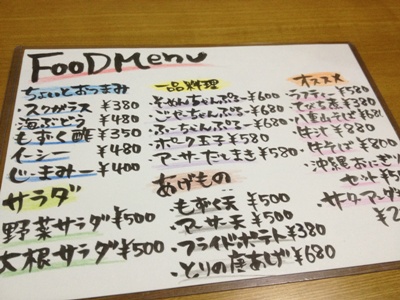 FooD Menu
ちょいとおつまみ
・スクガラス ¥380
・海ぶどう ¥480
・もずく酢 ¥350
・イーシー ¥480
・じーまみー ¥400
サラダ
野菜サラダ ¥500
大根サラダ ¥500
一品料理
・そーめんちゃんぷるー ¥600
・ごーやーちゃんぷるー ¥680
・ふーちゃんぷるー ¥580
・ポーク玉子 ¥580
・アーサーだしまき ¥580
あげもの
・もずく天 ¥500
・アーサ天 ¥500
・フライドポテト ¥380
・とりの唐あげ ¥680
オススメ
・ラフティー ¥580
・てびち煮 ¥380
・八重山そば ¥680
・牛汁 ¥880
・牛そば ¥800
・沖縄おにぎり
セット ¥5
・サーターアンダギー
¥2